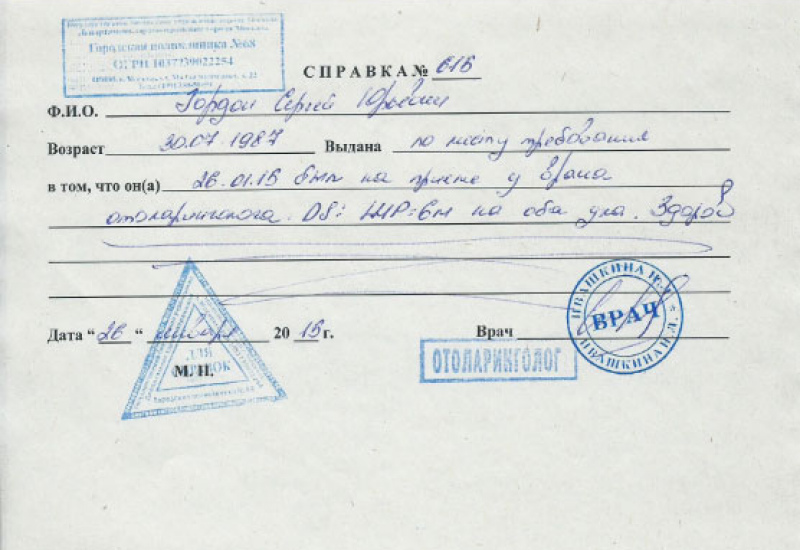 Городская поликлиника №68
ОГРН 1037739022254
СПРАВКА № 616
Ф.И.О. Гордон Сергей Юрьевич
Возраст 30.07.1987 Выдана по месту требования
в том, что он(а) 26.01.15 был на приеме у врача
отоларинголога. DS: ШР=6м на оба уха. Здоров
Дата “ 26 “ января 20 15 г. Врач
М.П.
ДЛЯ
ВРАЧ
ИВАШКИНА И.Л.
ОТОЛАРИНГОЛОГ